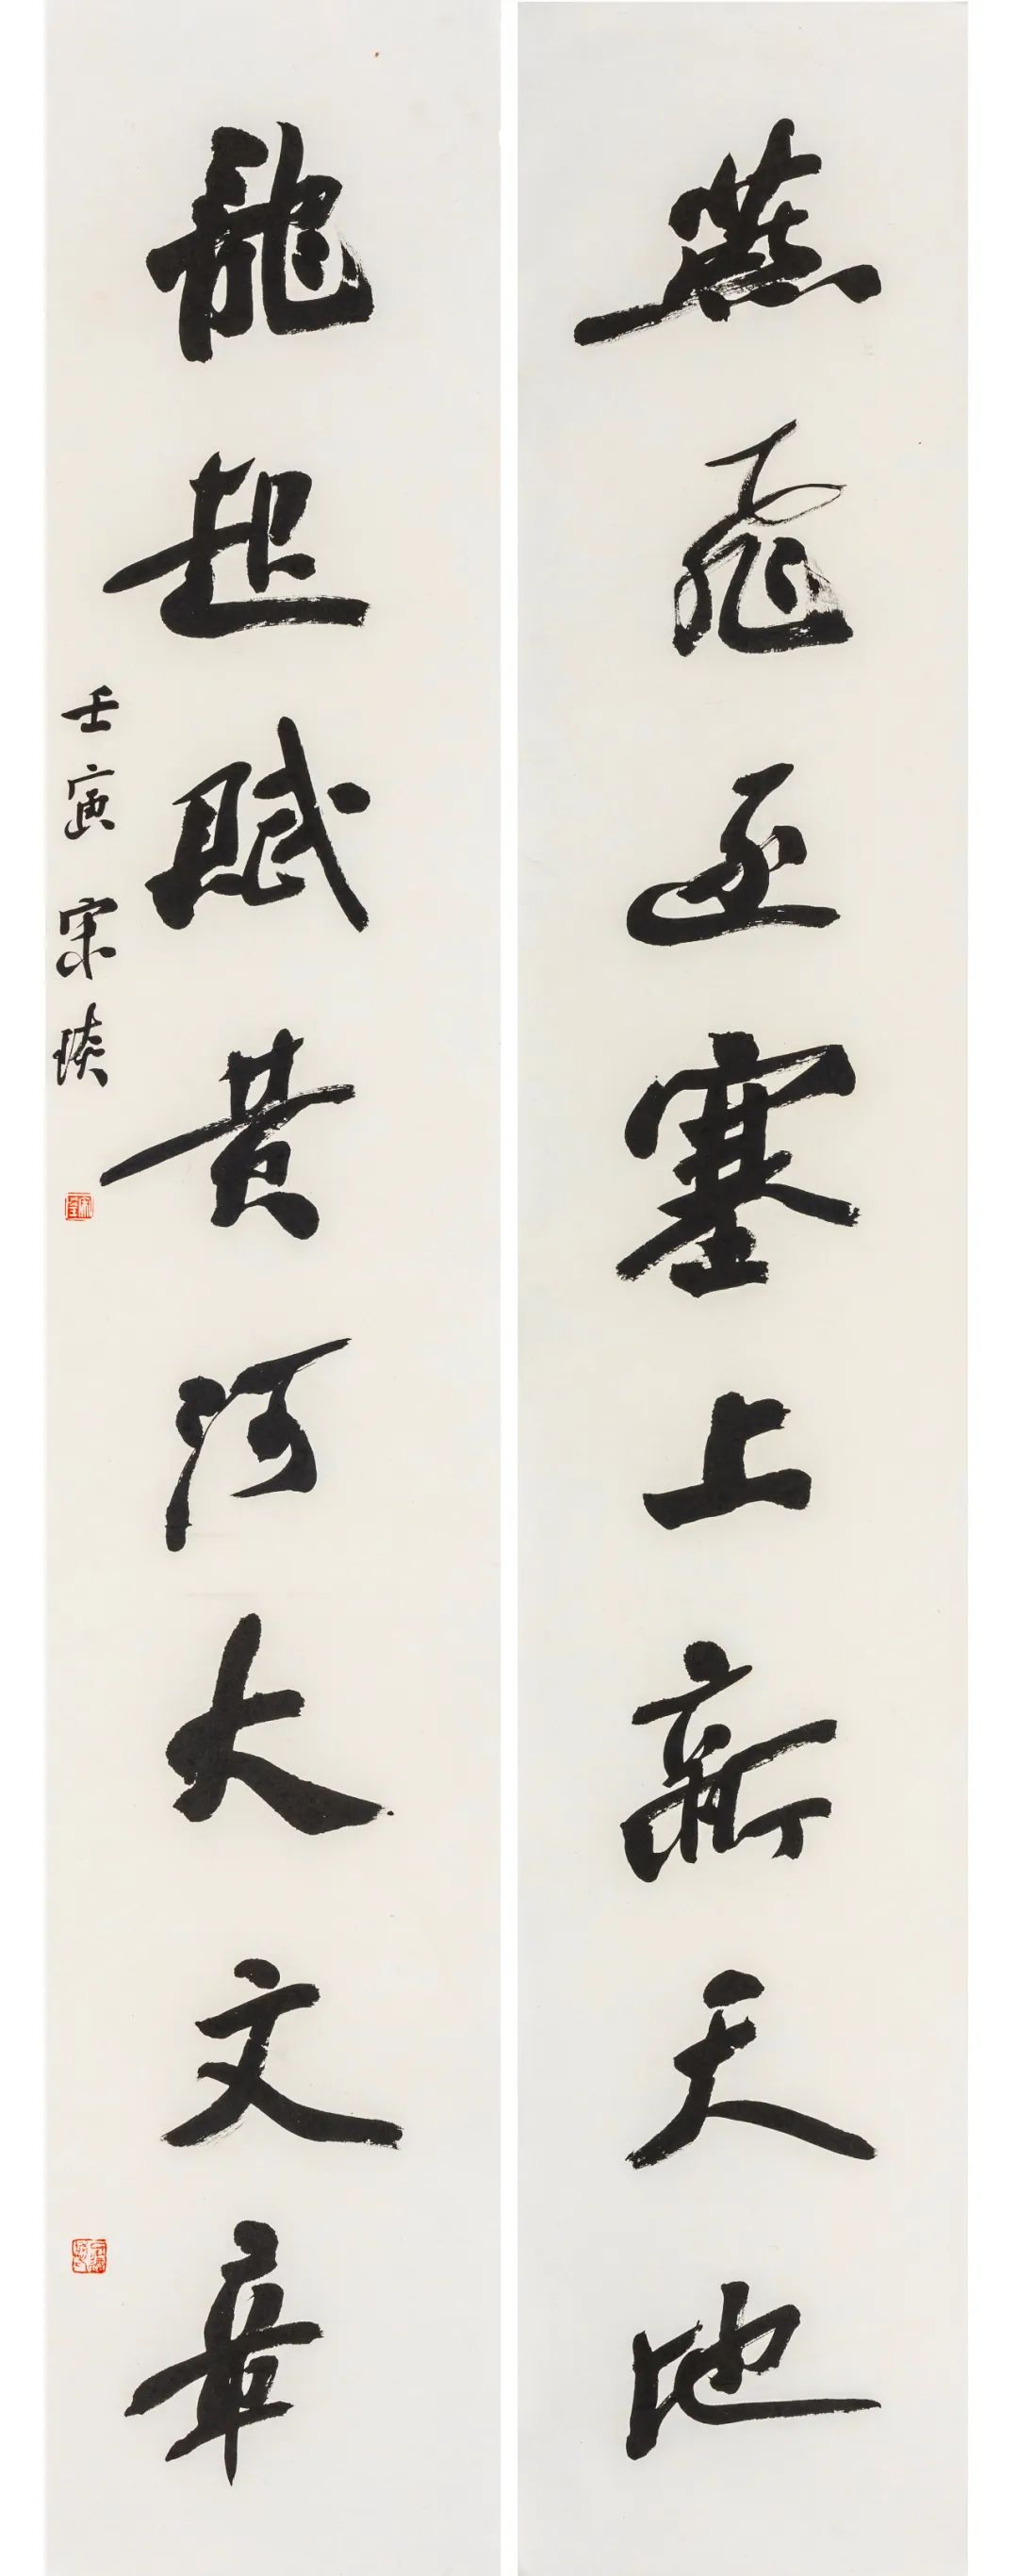 燕飛逐塞上新天地
龍起賦黄河大文章
壬寅 宋琰